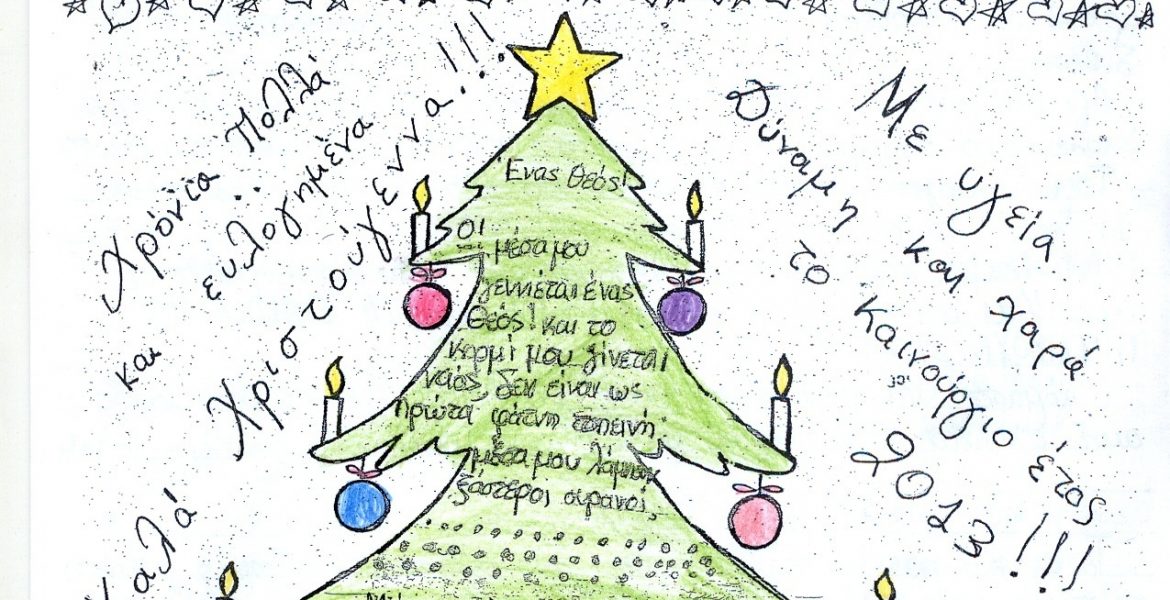 Χρόνια Πολλά
και ευλογημένα
Χριστούγεννα!!!
Με υγεία
Δύναμη και χαρά
το καινούργιο έτος
2013!!!
Ένας Θεός!
Ω!
μέσα μου
γεννιέται ένας
Θεός! και το
κορμί μου γίνεται
ναός, δεν είναι ως
πρώτα φάτνη ταπεινή
μέσα μου λάμπουν
ξάστεροι ουρανοί,
Καλά